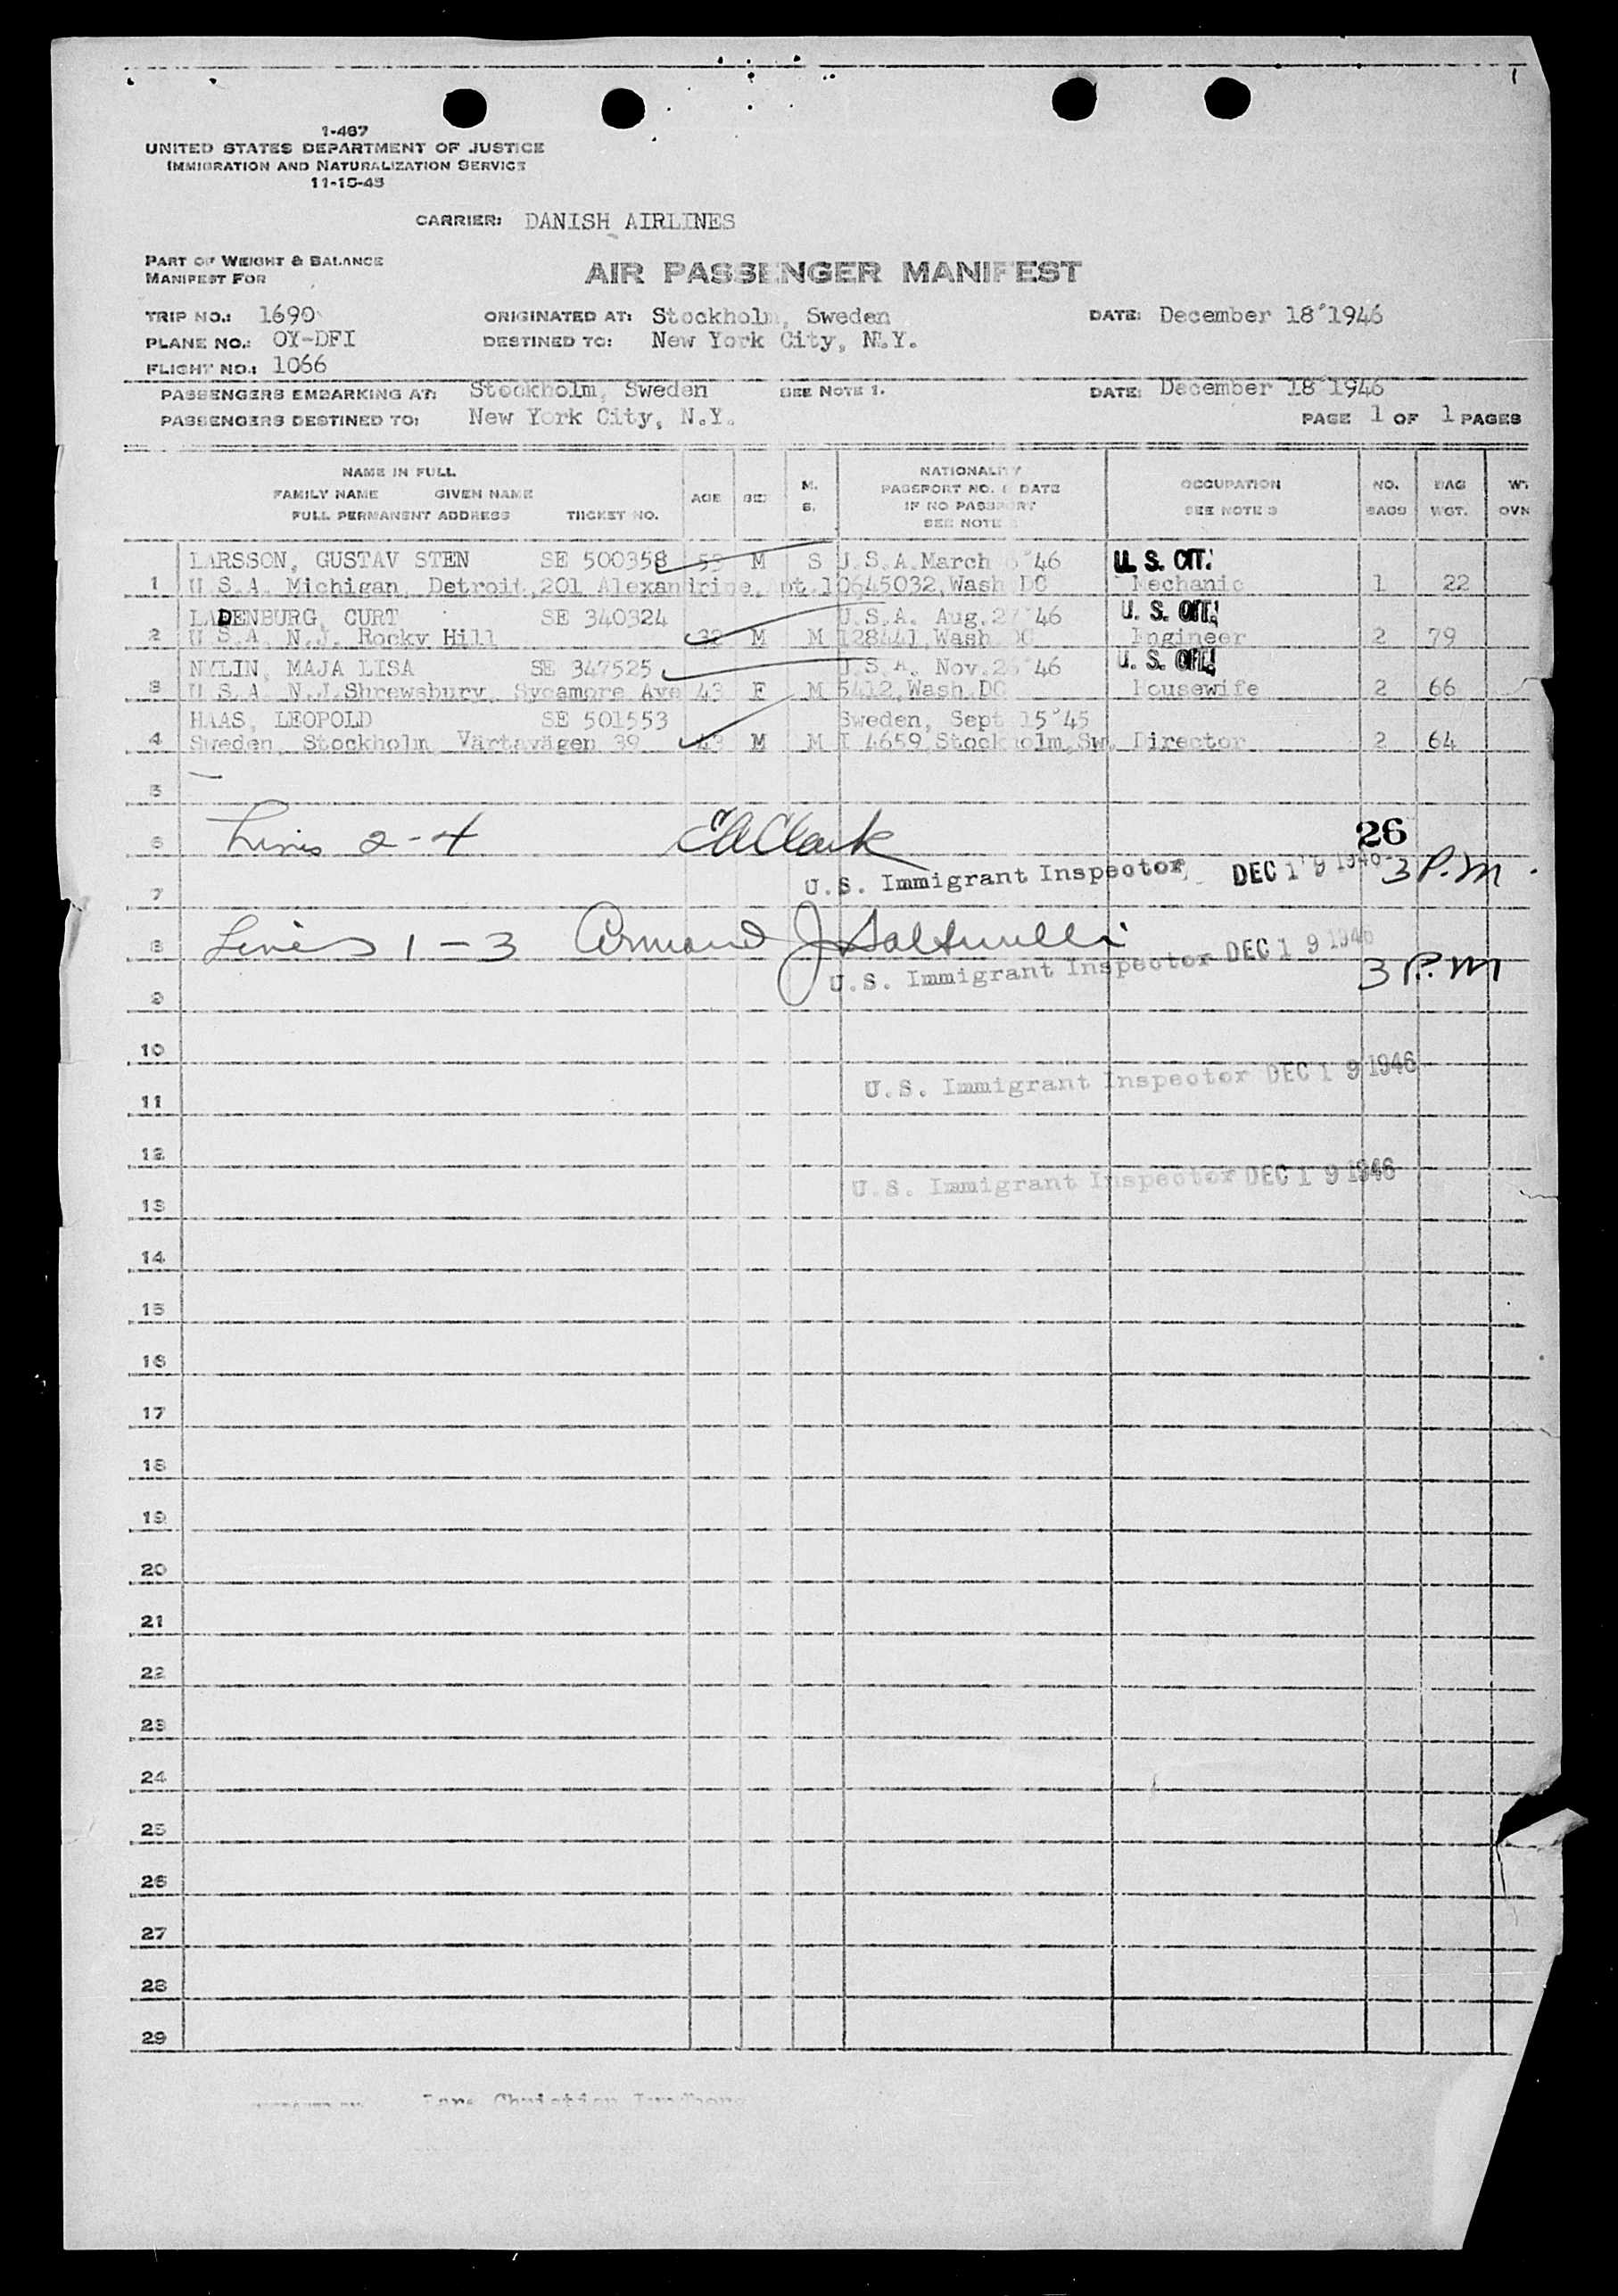 1-467
UNITED STATES DEPARTMENT OF JUSTICE
IMMIGRATION AND NATURALIZATION SERVICE
11-15-45
CARRIER: DANISH AIRLINES
PART OF WEIGHT & BALANCE
MANIFEST FOR
AIR PASSENGER MANIFEST
TRIP NO.: 1690 ORIGINATED AT: Stockholm, Sweden DATE: December 18'1946
PLANE NO.: OY-DFI DESTINED TO: New York City, N.Y.
FLIGHT NO.: 1066
PASSENGERS EMBARKING AT: Stockholm, Sweden SEE NOTE 1. DATE: December 18'1946
PASSENGERS DESTINED TO: New York City, N.Y. PAGE 1 OF 1 PAGES
NAME IN FULL
FAMILY NAME GIVEN NAME
FULL PERMANENT ADDRESS TICKET NO.
AGE SEX M. S.
NATIONALITY
PASSPORT NO. & DATE
IF NO PASSPORT
SEE NOTE
OCCUPATION
SEE NOTE 3
NO.
BAGS
BAG
WGT.
WT.
OVN
LARSSON, GUSTAV STEN SE 500358 53 M S U.S.A. March '46 U. S. CIT.
1 U.S.A. Michigan, Detroit, 201 Alexandrine, Apt.10 645032, Wash DC Mechanic 1 22
LADENBURG, CURT SE 340324 U.S.A. Aug. 27'46 U. S. CIT.
2 U.S.A. N.J. Rocky Hill 32 M M 128441, Wash DC Engineer 2 79
NYLIN, MAJA LISA SE 347525 U.S.A. Nov. '46 U. S. CIT.
3 U.S.A. N.J. Shrewsbury, Sycamore Ave 43 F M 5412, Wash.DC Housewife 2 66
HAAS, LEOPOLD SE 501553 Sweden, Sept 15'45
4 Sweden, Stockholm, Värtavägen 39 43 M M I 4659, Stockholm, Sw. Director 2 64
5
6 Lines 2-4 EA Clark 26
U.S. Immigrant Inspector DEC 19 1946 3 P.M.
7
8 Lines 1-3 Armand J
U.S. Immigrant Inspector DEC 19 1946 3 P.M
9
10
U.S. Immigrant Inspector DEC 19 1946
11
12
U.S. Immigrant Inspector DEC 19 1946
13
14
15
16
17
18
19
20
21
22
23
24
25
26
27
28
29
Christian